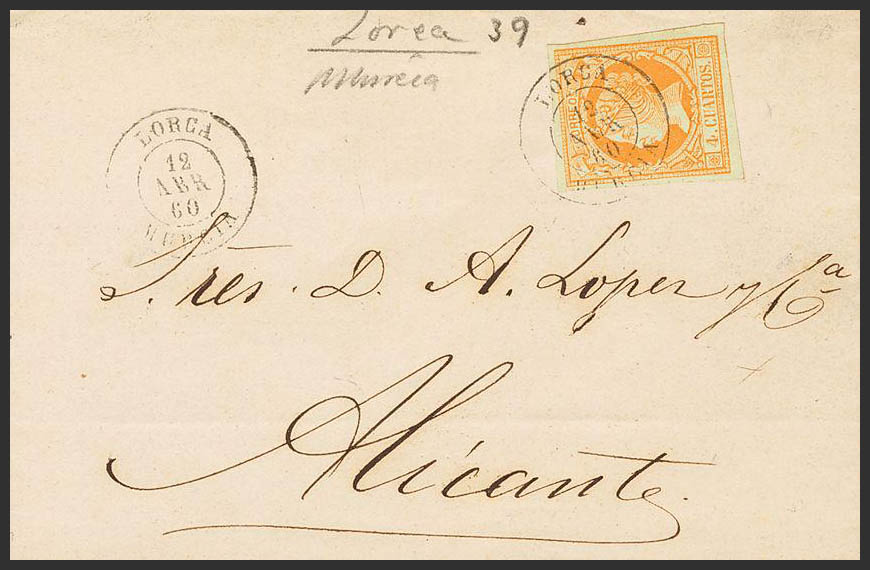 Lorca 39
Murcia
LORCA
12
ABR
60
MURCIA
LORCA
12
ABR
60
MURCIA
4. CUARTOS.
Sres. D. A. Lopez y Cª
Alicante.